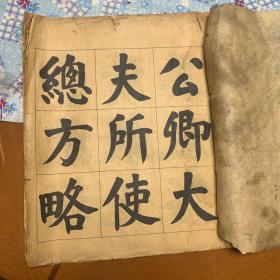 公卿大
夫所使
總方略